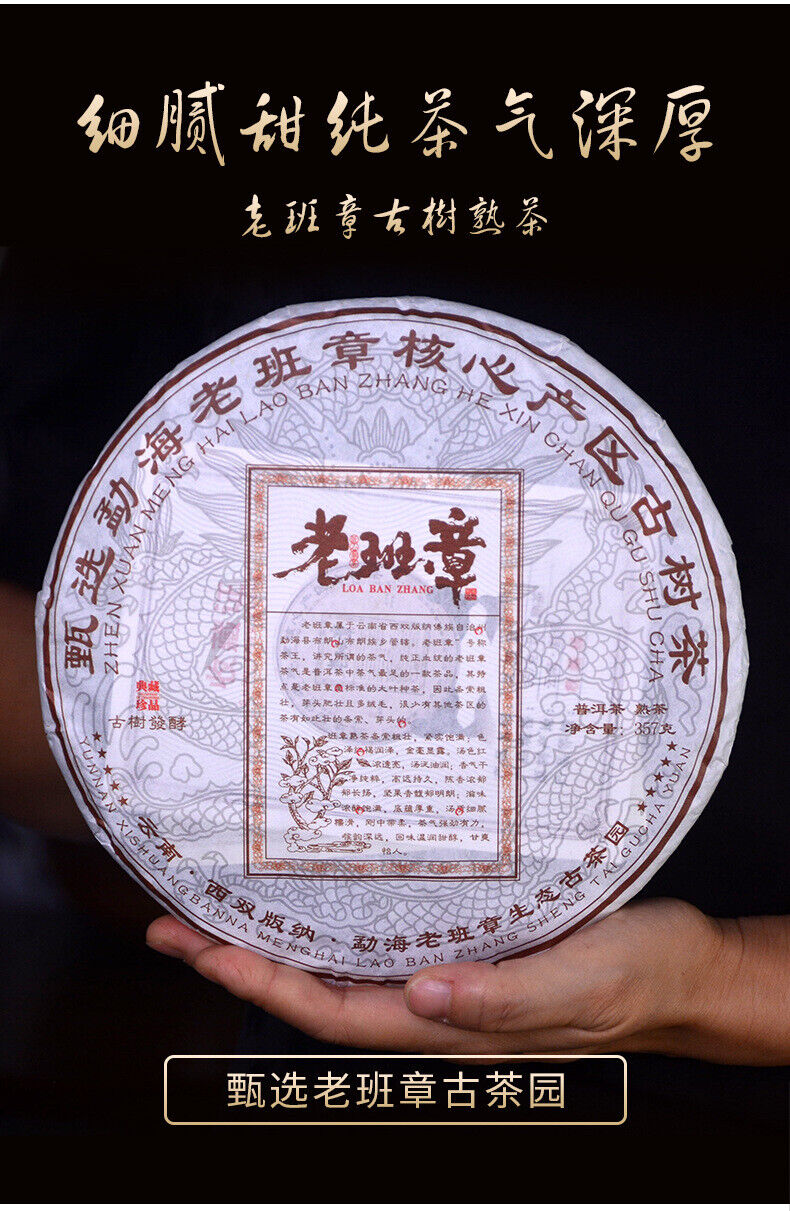 细腻甜纯茶气深厚
老班章古樹熟茶
甄选勐海老班章核心产区古树茶
ZHEN XUAN MENG HAI LAO BAN ZHANG HE XIN CHAN QU GU SHU CHA
老班章
LOA BAN ZHANG
老班章属于云南省西双版纳傣族自治州
勐海县布朗山布朗族乡管辖。老班章"号称
茶王，讲究所谓的茶气，纯正血统的老班章
茶气是普洱茶中茶气最足的一款茶品，其特
点是老班章是标准的大叶种茶，因此条索粗
壮，芽头肥壮且多绒毛，很少有其他茶区的
茶有如此壮的条索，芽头
班章熟茶条索粗壮，紧实饱满；色
泽红褐润泽，金毫显露，汤色红
浓透亮，汤泛油润；香气干
净纯粹，高远持久，陈香浓郁
悠长扬，坚果香馥郁明朗；滋味
浓饱满，底蕴厚重，汤细腻
糯滑，刚中带柔，茶气强劲有力，
韵深远，回味温润甜醇，甘爽
怡人。
典藏
珍品
古樹發酵
普洱茶 熟茶
净含量：357克
云南·西双版纳·勐海老班章生态古茶园
YUNNAN XISHUANGBANNA MENGHAI LAO BAN ZHANG SHENG TAI GUCHA YUAN
甄选老班章古茶园